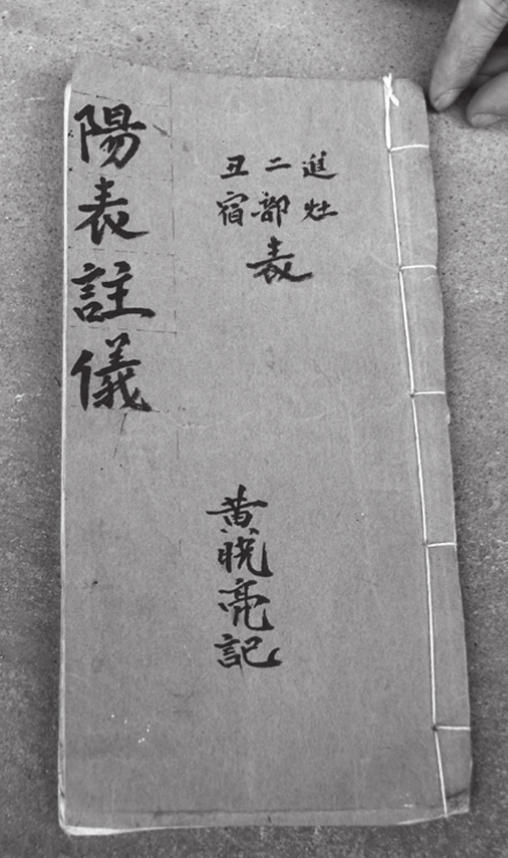 陽表註儀
進灶
二部
丑宿
表
黄晓亮記